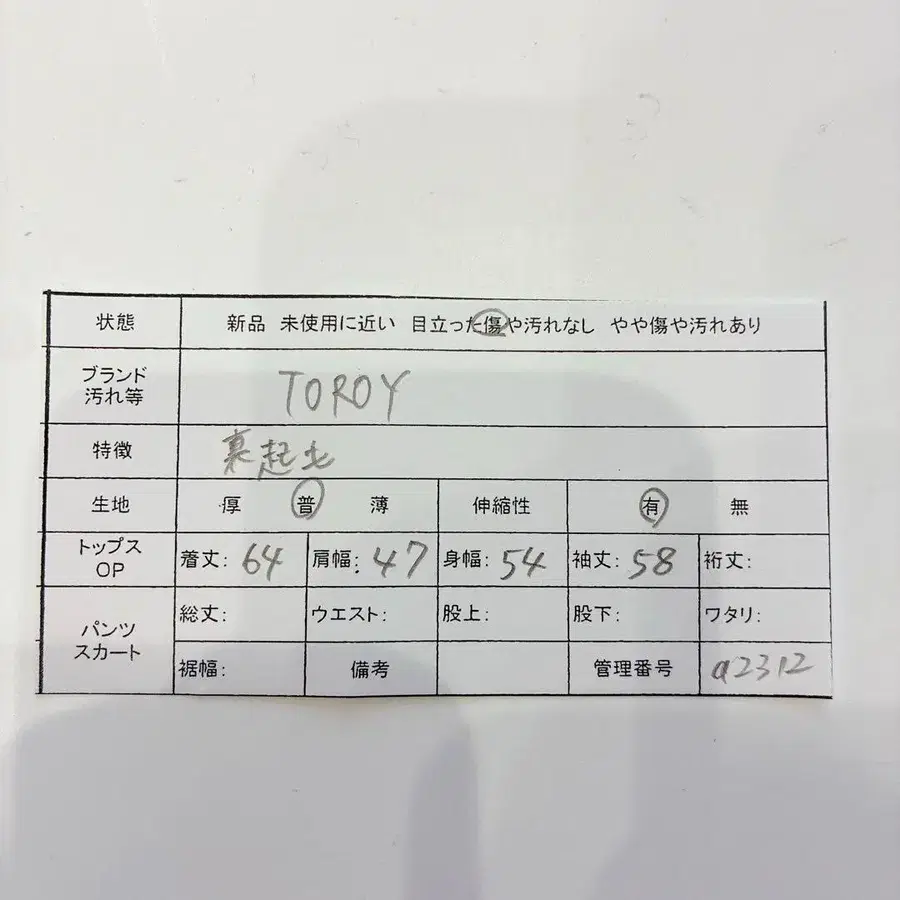 状態 新品 未使用に近い 目立った傷や汚れなし やや傷や汚れあり
ブランド
汚れ等
TOROY
特徴 裏起毛
生地 厚 普 薄 伸縮性 有 無
トップス
OP
着丈: 64 肩幅: 47 身幅: 54 袖丈: 58 裄丈:
パンツ
スカート
総丈: ウエスト: 股上: 股下: ワタリ:
裾幅: 備考 管理番号 a2312